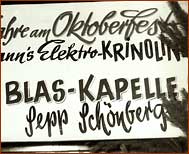 ahre am Oktoberfest
ann's Elektro-KRINOLIN
BLAS-KAPELLE
Sepp Schönberg